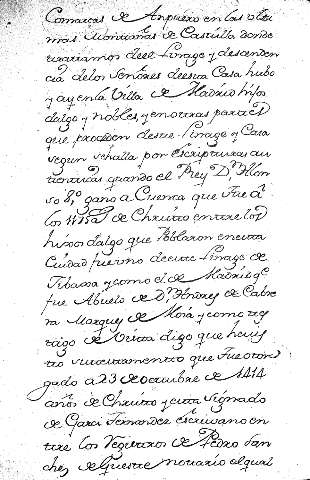 Comarcas de Anpuero en las ulti
mas Montañas de Castilla donde
deste Linage y descenden
cia de los Señores de esta Casa hubo
y ay en la Villa de Madrid hijos
dalgo y nobles, y en otras partes
que proceden deste Linage y Casa
segun se halla por escripturas au
tenticas quando el Rey Dn Alon
so 8º gano a Cuenca que fue à
los de Christo entre los
hijos dalgo que Poblaron en esta
Ciudad fue uno de este Linage de
y como el de Madrid qe
fue Abuelo de Dn Andres de Cabre
ra Marques de Moià y como tes
tigo de Vista digo que he vis
to un testamento que fue otor
gado a 23 de octubre de 1414
años de Christo y esta signado
de Garci Fernandez escrivano en
tre los Registros de Pedro San
chez de notario el qual